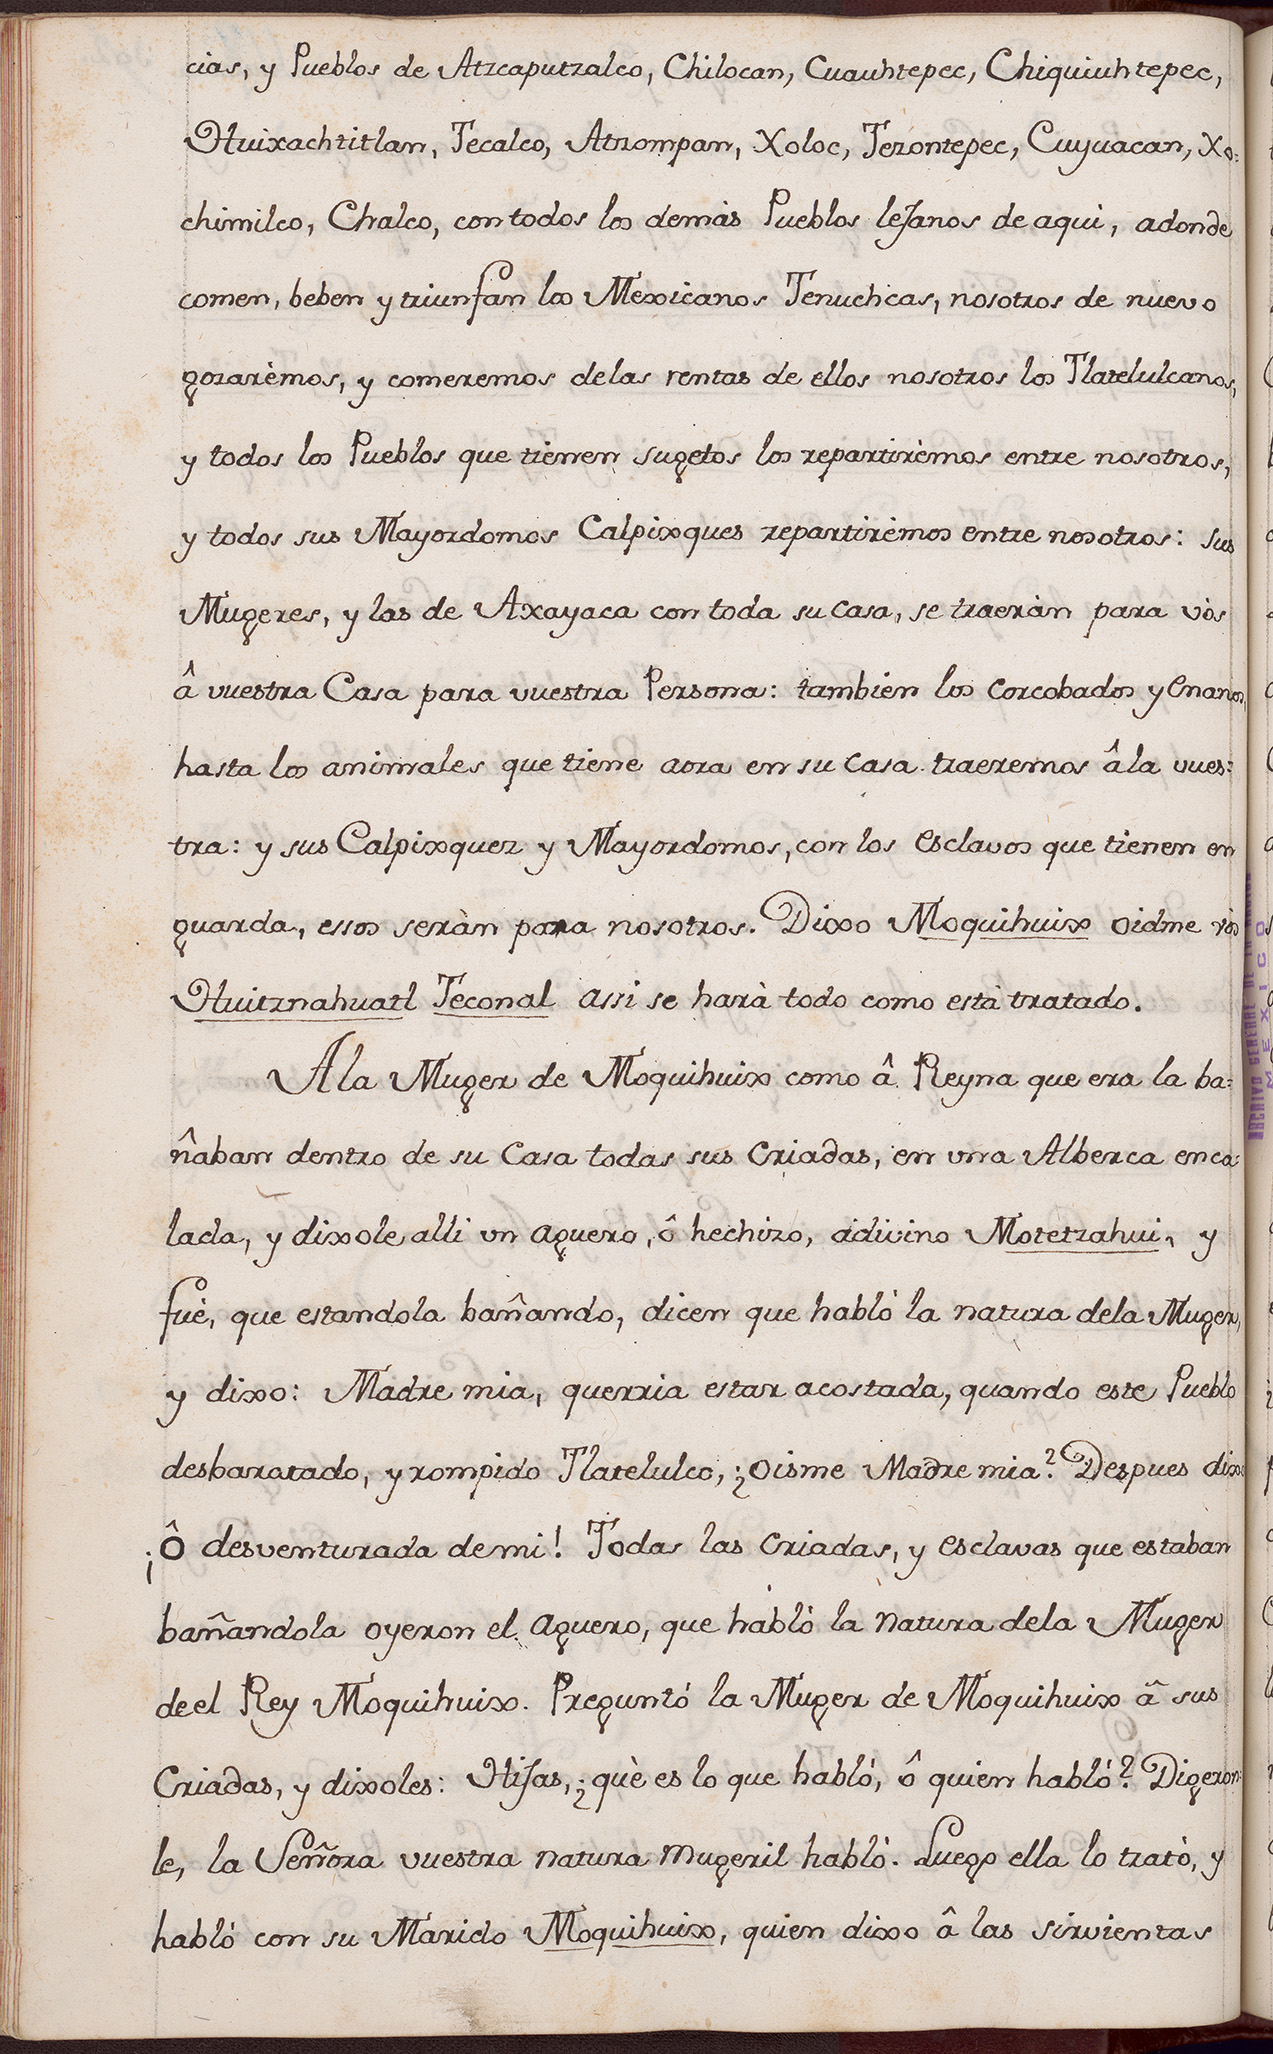 cias, y Pueblos de Atzcaputzalco, Chilocan, Cuauhtepec, Chiquiuhtepec,
Huixachtitlan, Tecalco, Atzompan, Xoloc, Tezontepec, Cuyuacan, Xo=
chimilco, Chalco, con todos los demàs Pueblos lejanos de aqui, adonde
comen, beben y triunfan los Mexicanos Tenuchcas, nosotros de nuevo
gozarèmos, y comeremos delas rentas de ellos nosotros los Tlatelulcanos,
y todos los Pueblos que tienen sugetos los repartirèmos entre nosotros,
y todos sus Mayordomos Calpixques repartirèmos entre nosotros: sus
Mugeres, y las de Axayaca con toda su casa, se traeràn para vòs
â vuestra Casa para vuestra Persona: tambien los corcobados y Enanos,
hasta los animales que tiene aora en su casa traeremos âla vues=
tra: y sus Calpixquez y Mayordomos, con los Esclavos que tienen en
guarda, essos seràn para nosotros. Dixo Moquihuix oidme vòs
Huitznahuatl Teconal assi se harà todo como està tratado.
Ala Muger de Moquihuix como â Reyna que era la ba=
ñaban dentro de su Casa todas sus Criadas, en vna Alberca enca=
lada, y dixole alli vn aguero, ô hechizo, adivino Motetzahui, y
fuè, que estandola bañando, dicen que hablò la natura dela Muger,
y dixo: Madre mia, querria estar acostada, quando este Pueblo
desbaratado, y rompido Tlatelulco, ¿oisme Madre mia? Despues dixo
¡Ô desventurada demi! Todas las criadas, y esclavas que estaban
bañandola oyeron el aguero, que hablò la natura dela Muger
de el Rey Moquihuix. Preguntó la Muger de Moquihuix â sus
Criadas, y dixoles: Hijas, ¿què es lo que hablò, ô quien hablò? Digeron=
le, la Señora vuestra natura mugeril hablò. Luego ella lo tratò, y
habló con su Marido Moquihuix, quien dixo â las sirvientas
ARCHIVO GENERAL DE
MEXICO